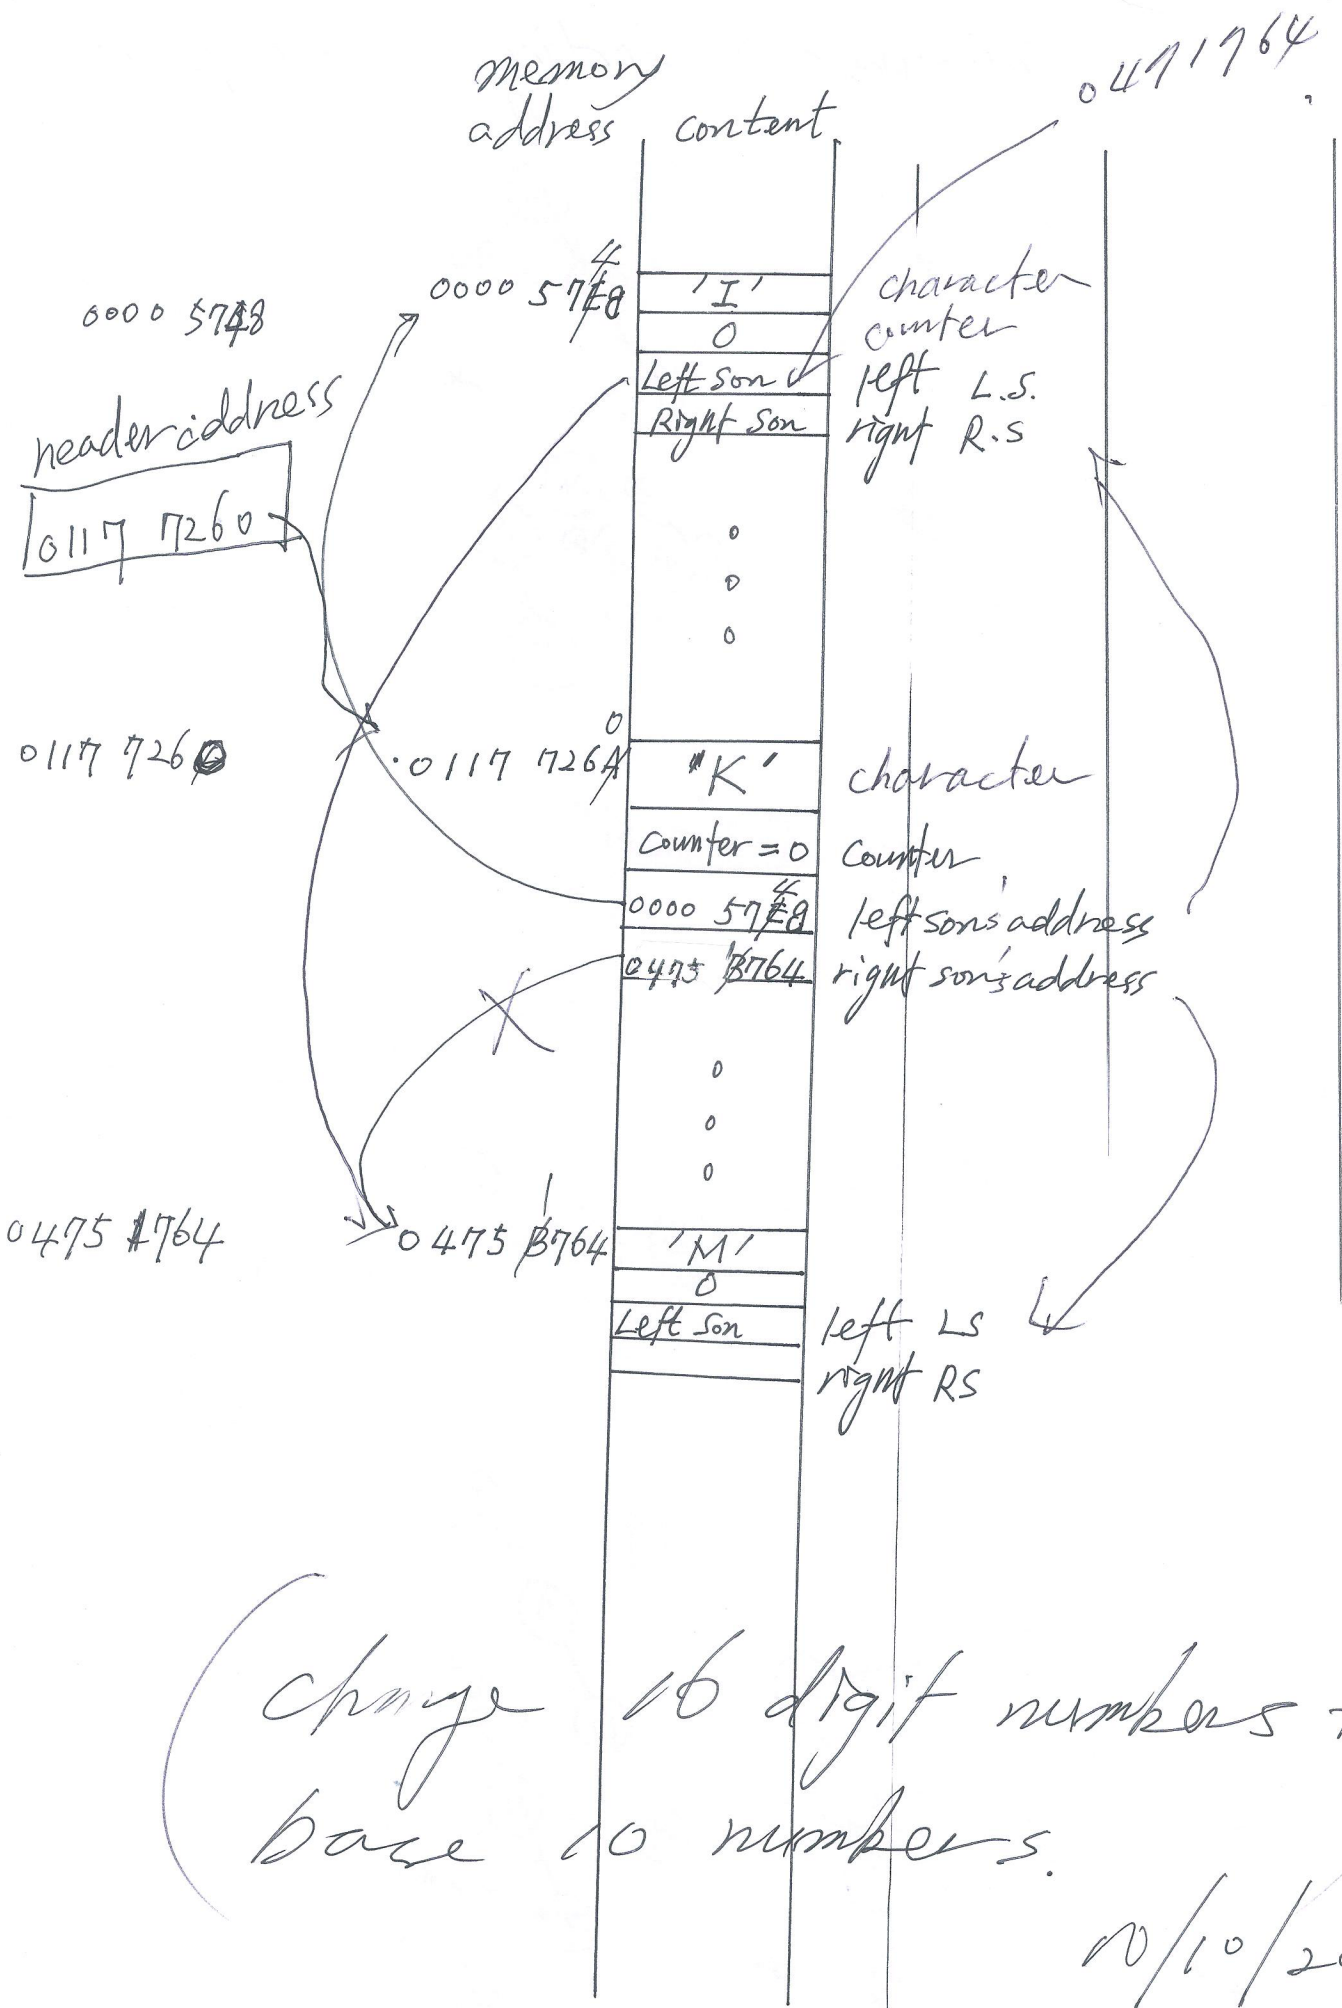 0471764
memory
address content
4
0000 5748 0000 57E8 'I' character
0 counter
Left Son left L.S.
Right Son right R.S
header address
0117 7260
0
0117 7260 0117 726A 'K' character
Counter = 0 Counter
4
0000 57E8 left son's address
0475 B764 right son's address
1
0475 1764 0475 B764 'M'
0
Left Son left LS
right RS
Change 16 digit numbers
base 10 numbers.
10/10/2